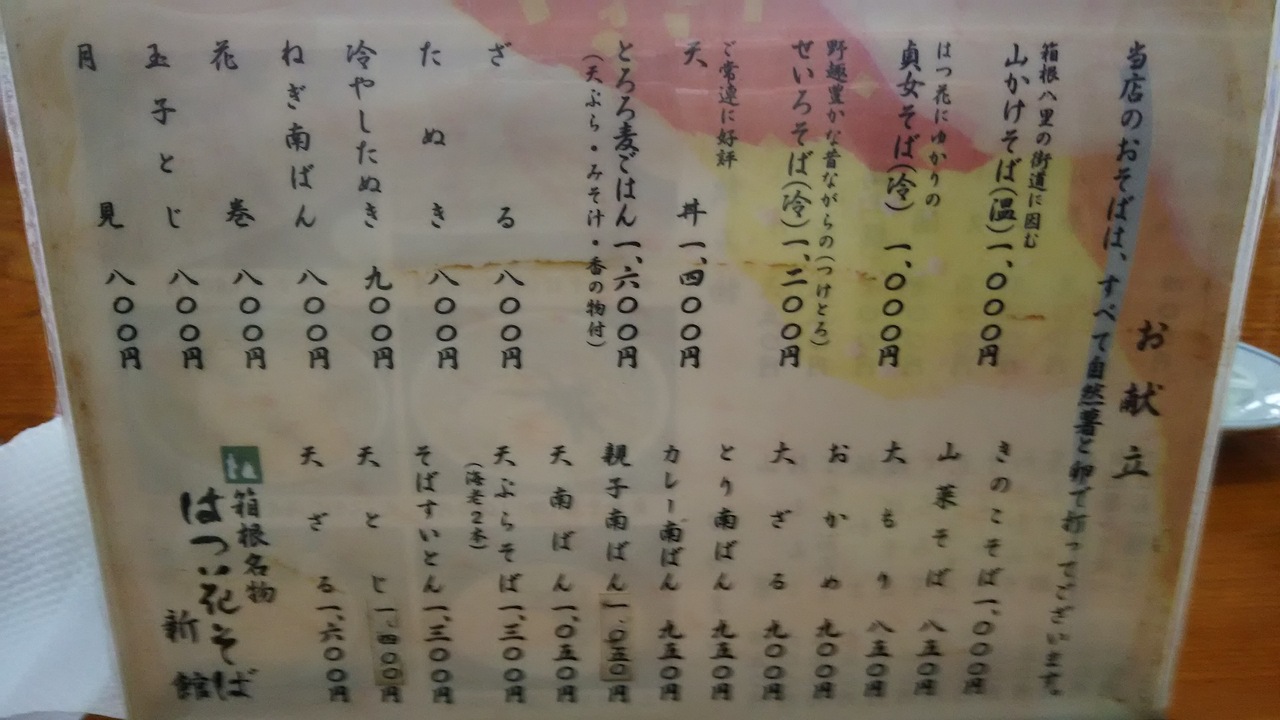 お献立
当店のおそばは、すべて自然薯と卵で打ってございます。
箱根八里の街道に因む
山かけそば(温)一、〇〇〇円
はつ花にゆかりの
貞女そば(冷)一、〇〇〇円
野趣豊かな昔ながらの(つけとろ)
せいろそば(冷)一、二〇〇円
ご常連に好評
天丼一、四〇〇円
とろろ麦ごはん一、六〇〇円
(天ぷら・みそ汁・香の物付)
ざる八〇〇円
たぬき八〇〇円
冷やしたぬき九〇〇円
ねぎ南ばん八〇〇円
花巻八〇〇円
玉子とじ八〇〇円
月見八〇〇円
きのこそば一、〇〇〇円
山菜そば八五〇円
大もり八五〇円
おかめ九〇〇円
大ざる九〇〇円
とり南ばん九五〇円
カレー南ばん九五〇円
親子南ばん一、〇五〇円
天南ばん一、〇五〇円
天ぷらそば一、三〇〇円
(海老2本)
そばすいとん一、三〇〇円
天とじ一、四〇〇円
天ざる一、六〇〇円
箱根名物
はつ花そば
新館